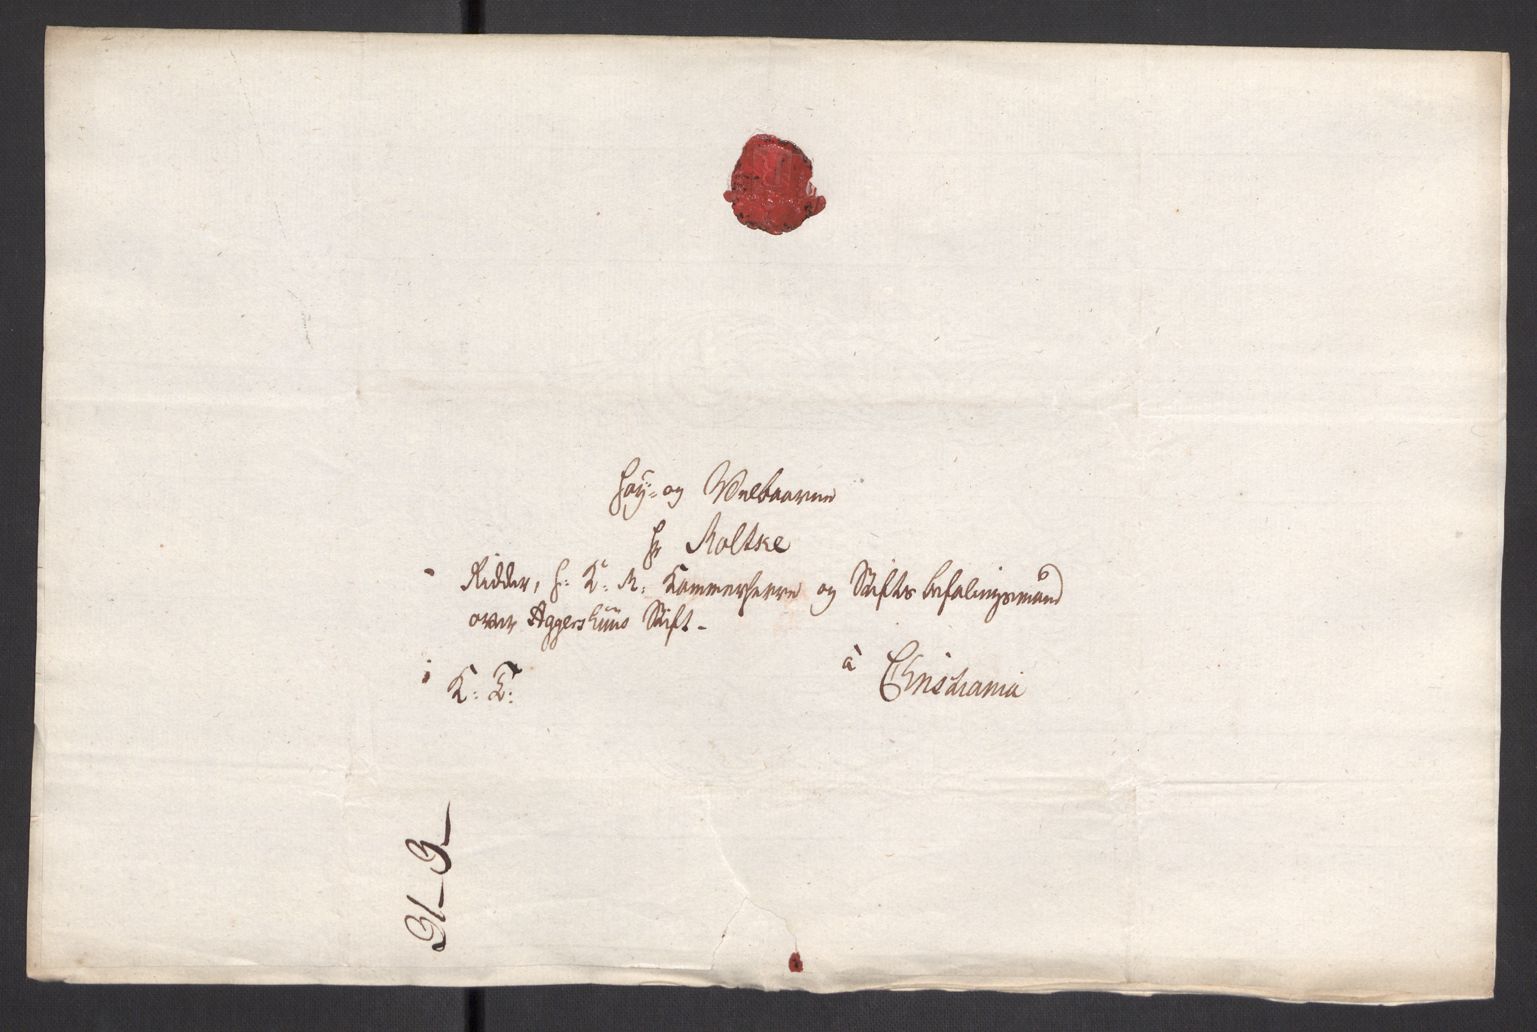 Høy- og Velbaarne
Hr Moltke
Ridder, H: K: M: Kammerherre og Stiftsbefalingsmand
over Aggershuus Stift -
â Christiania
K: T:
31-3-